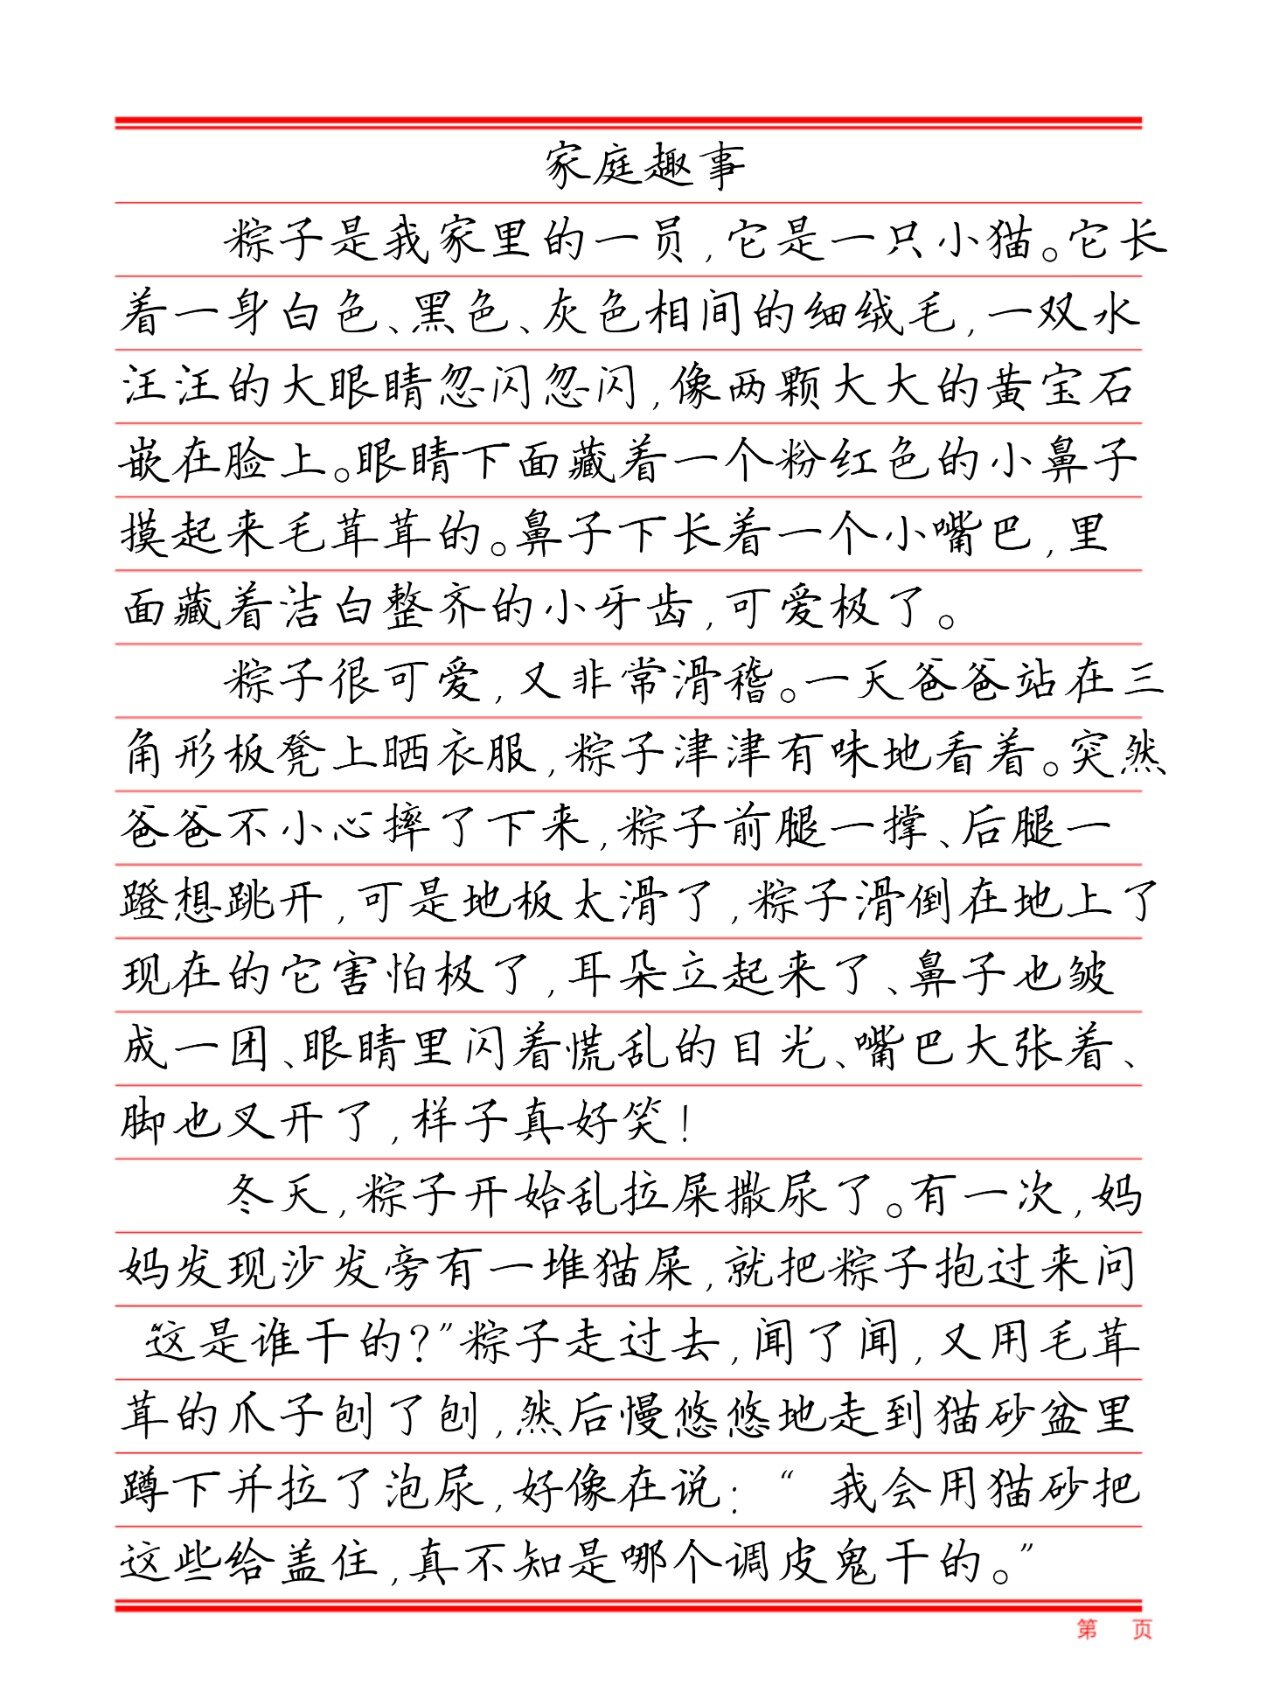 家庭趣事
粽子是我家里的一员,它是一只小猫。它长
着一身白色、黑色、灰色相间的细绒毛,一双水
汪汪的大眼睛忽闪忽闪,像两颗大大的黄宝石
嵌在脸上。眼睛下面藏着一个粉红色的小鼻子
摸起来毛茸茸的。鼻子下长着一个小嘴巴,里
面藏着洁白整齐的小牙齿,可爱极了。
粽子很可爱,又非常滑稽。一天爸爸站在三
角形板凳上晒衣服,粽子津津有味地看着。突然
爸爸不小心摔了下来,粽子前腿一撑、后腿一
蹬想跳开,可是地板太滑了,粽子滑倒在地上了
现在的它害怕极了,耳朵立起来了、鼻子也皱
成一团、眼睛里闪着慌乱的目光、嘴巴大张着、
脚也叉开了,样子真好笑!
冬天,粽子开始乱拉屎撒尿了。有一次,妈
妈发现沙发旁有一堆猫屎,就把粽子抱过来问
“这是谁干的?”粽子走过去,闻了闻,又用毛茸
茸的爪子刨了刨,然后慢悠悠地走到猫砂盆里
蹲下并拉了泡尿,好像在说:“我会用猫砂把
这些给盖住,真不知是哪个调皮鬼干的。”
第 页